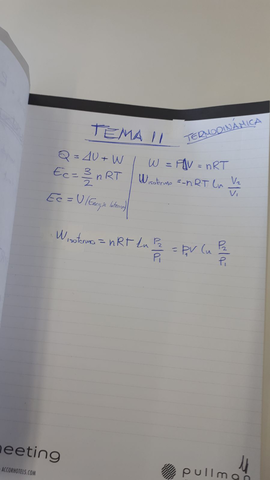 TEMA 11
TERMODINÁMICA
Q = ΔU + W
Ec = 3/2 nRT
Ec = U/
W = PΔV = nRT
W isotermo = -nRT ln V2/V1
W isotermo = nRT ln P2/P1 = P1V ln P2/P1
meeting
ACCORHOTELS.COM
pullman